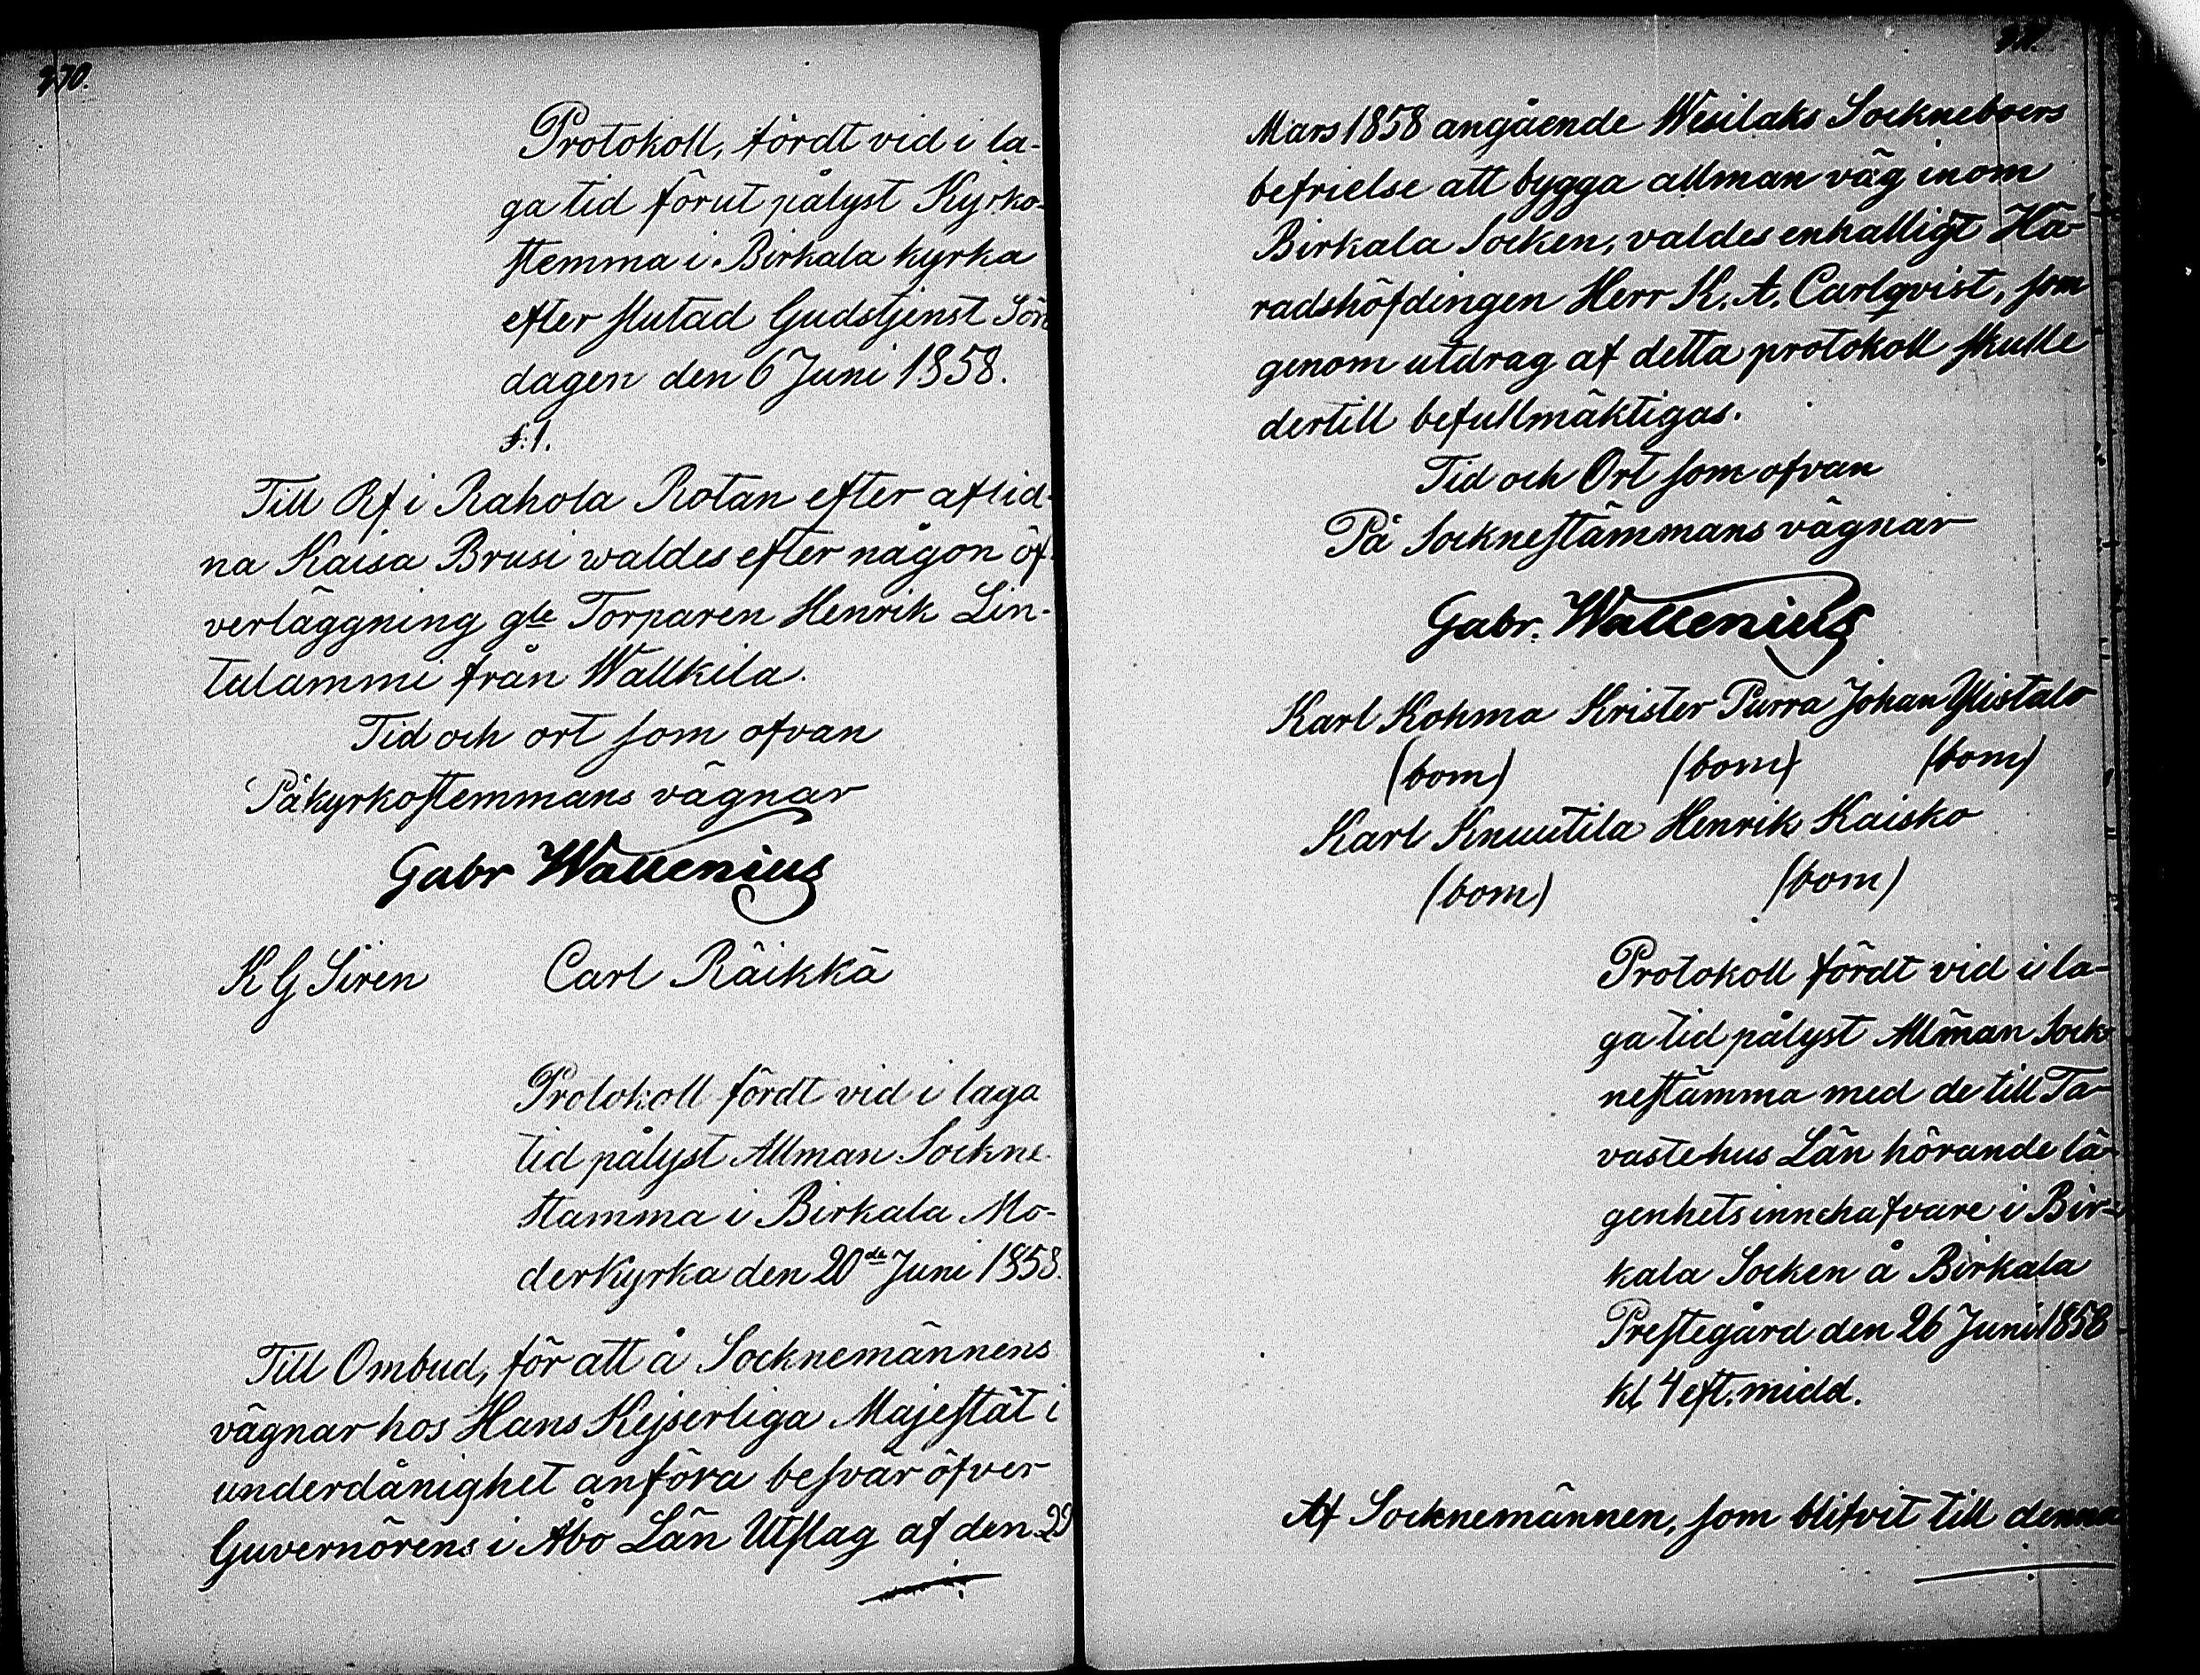 270.
Protokoll, fördt vid i la-
ga tid förut pålyst Kyrko-
stemma i Birkala kyrka
efter slutad Gudstjenst Sön
dagen den 6 Juni 1858.
§.1.
Till Rf i Rahola Rotan efter aflid-
na Kaisa Brusi waldes efter någon öf-
verläggning gle Torparen Henrik Lin-
tulammi från Wallkila.
Tid och ort som ofvan
På kyrkostemmans vägnar
Gabr Wallenius
K G Siren Carl Räikkä
Protokoll fördt vid i laga
tid pålyst Allman Sockne
stamma i Birkala Mo-
derkyrka den 20de Juni 1858.
Till Ombud, för att å Socknemännens
vägnar hos Hans Kejserliga Majestät i
underdånighet anföra besvär öfver
Guvernörens i Åbo Län Utslag af den 29
Mars 1858 angående Wesilaks Sockneboers
befrielse att bygga allman väg inom
Birkala Socken, valdes enhalligt Hä-
radshöfdingen Herr K. A. Carlqvist, som
genom utdrag af detta protokoll skulle
dertill befullmäktigas.
Tid och Ort som ofvan
På Socknestämmans vägnar
Gabr. Wallenius
Karl Kohma Krister Purra Johan Ylistalo
(bom) (bom) (bom)
Karl Knuutila Henrik Kaisko
(bom) (bom)
Protokoll fördt vid i la-
ga tid pålyst Allmän Sock-
nestämma med de till Ta-
vastehus Län hörande lä-
genhetsinnehafvare i Bir-
kala Socken å Birkala
Prestegård den 26 Juni 1858
kl 4 eft. midd.
Af Socknemännen, som blifvit till denna